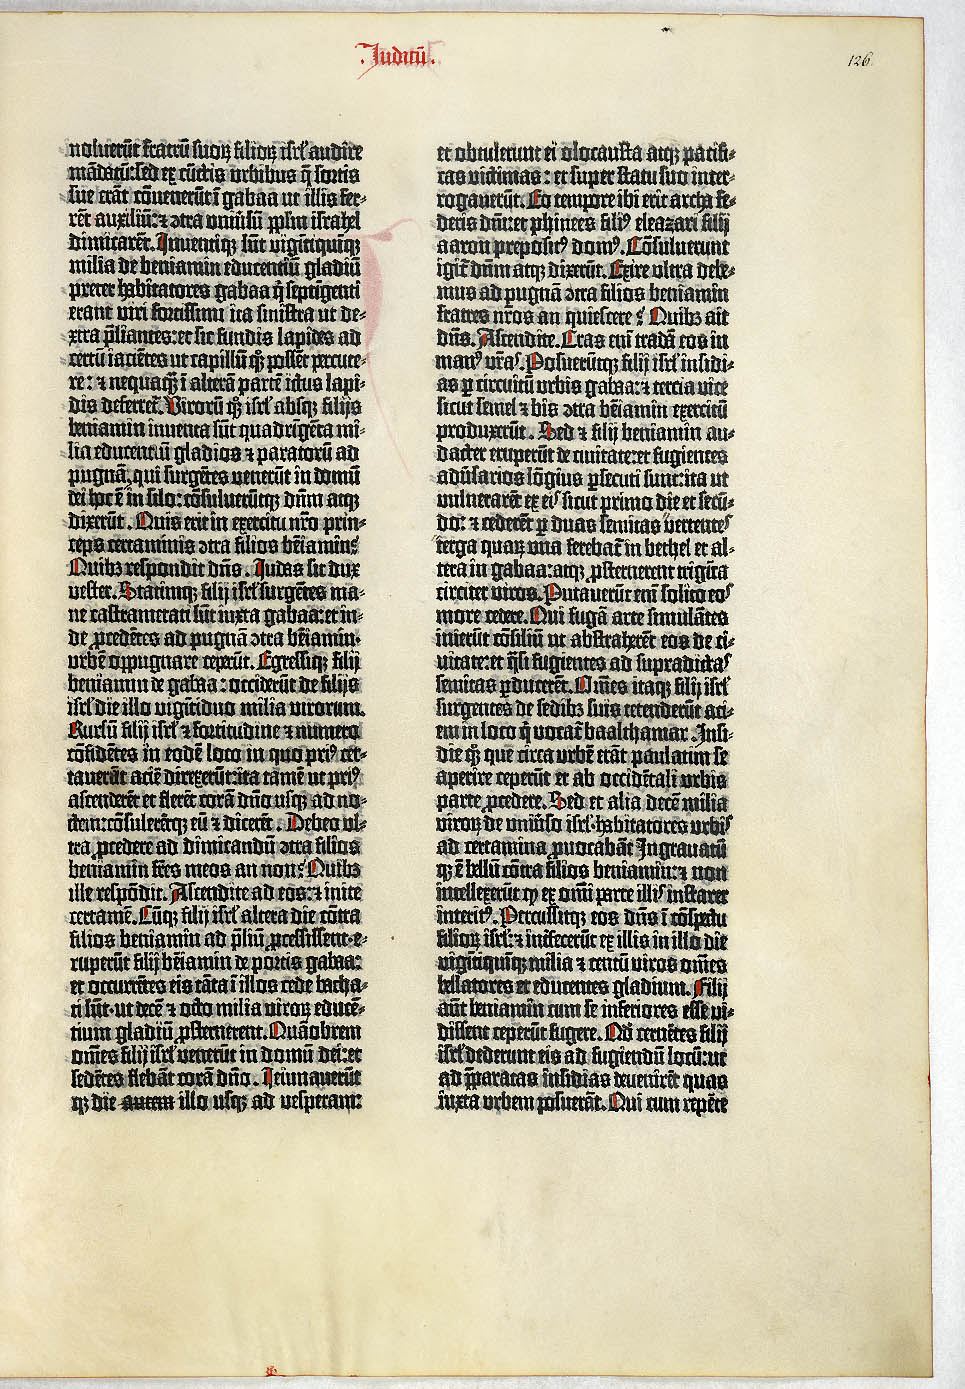 .Judicū.
126.
noluerūt fratrū suoꝝ filioꝝ isrl̓ audire
mādatū: sed ex cūctis urbibus q̄ sortis
sue erāt cōuenerūt ī gabaa ut illis fer-
rēt auxiliū: ⁊ ↄtra univ̓sū ppl̓m israhel
dimicarēt. Inuentiqꝫ sūt vigītiquīqꝫ
milia de beniamin educentiū gladiū
preter habitatores gabaa q̄ septīgenti
erant viri fortissimi ita sinistra ut de-
xtra p̄liantes: et sic fundis lapides ad
certū iaciētes ut capillū qꝫ possēt percute-
re: ⁊ nequaq̄ ī alterā partē ictus lapi-
dis deferret̓. Virorū qꝫ isrl̓ absqꝫ filijs
beniamin inuenta sūt quadrīgēta mi-
lia educentiū gladios ⁊ paratorū ad
pugnā, qui surgētes venerūt in domū
dei hoc ē in silo: cōsuluerūtqꝫ dn̄m atqꝫ
dixerūt. Quis erit in exercitu nr̄o prin-
ceps certaminis ↄtra filios bēiamin?
Quibꝫ respondit dn̄s. Judas sit dux
vester. Statimqꝫ filij isrl̓ surgētes ma-
ne castrametati sūt iuxta gabaa: et in-
de ꝓcedētes ad pugnā ↄtra bēiamin·
urbē oppugnare ceperūt. Egressiqꝫ filij
beniamin de gabaa: occiderūt de filijs
isrl̓ die illo vigītiduo milia virorum.
Rursū filij isrl̓ ⁊ fortitudine ⁊ numero
cōfidētes in eodē loco in quo priꝰ cer-
tauerāt aciē direxerūt: ita tamē ut priꝰ
ascenderēt et flerēt corā dn̄o usqꝫ ad no-
ctem: cōsulerētqꝫ eū ⁊ dicerēt. Debeo ul-
tra ꝓcedere ad dimicandū ↄtra filios
beniamin fr̄es meos an non? Quibꝫ
ille respōdit. Ascendite ad eos: ⁊ inite
certamē. Cūqꝫ filij isrl̓ altera die cōtra
filios beniamin ad p̄liū ꝓcessissent· e-
ruperūt filij bēiamin de portis gabaa:
et occurrētes eis tāta ī illos cede bacha-
ti sūt· ut decē ⁊ octo milia viroꝝ educē-
tium gladiū ꝓsternerent. Quāobrem
om̄es filij isrl̓ venerūt in domū dei: et
sedētes flebāt corā dn̄o. Ieiunauerūt
qꝫ die autem illo usqꝫ ad vesperam:
et obtulerunt ei olocausta atqꝫ pacifi-
cas victimas: et super statu suo inter-
rogauerūt. Eo tempore ibi erat archa fe-
deris dn̄i: et phinees filiꝰ eleazari filij
aaron prepositꝰ domꝰ. Cōsuluerunt
igit̓ dn̄m atqꝫ dixerūt. Exire ultra debe-
mus ad pugnā ↄtra filios beniamin
fratres nr̄os an quiescere? Quibꝫ ait
dn̄s. Ascendite. Cras eni tradā eos in
manꝰ vr̄as. Posuerūtqꝫ filij isrl̓ insidi-
as ꝑ circuitū urbis gabaa: ⁊ tercia vice
sicut semel ⁊ bis ↄtra bēiamin exercitū
produxerūt. Sed ⁊ filij beniamin au-
dacter eruperūt de ciuitate: et fugientes
adūsarios lōgius ꝑsecuti sunt: ita ut
vulnerarēt ex eis sicut primo die et secū-
do: ⁊ cederēt ꝑ duas semitas vertentes
terga quaꝝ una ferebat̓ in bethel et al-
tera in gabaa: atqꝫ ꝓsternerent trigīta
circiter viros. Putauerūt eni solito eos
more cedere. Qui fugā arte simulātes
inierūt cōsiliū ut abstraherēt eos de ci-
uitate: et q̄si fugientes ad supradictas
semitas ꝑducerēt. Om̄es itaqꝫ filij isrl̓
surgentes de sedibꝫ suis tetenderūt aci-
em in loco q̄ vocat̓ baalthamar. Insi-
die qꝫ que circa urbē erāt paulatim se
aperire ceperūt et ab occidētali urbis
parte ꝓcedere. Sed et alia decē milia
viroꝝ de univ̓so isrl̓· habitatores urbis
ad certamina ꝓuocabāt. Ingrauatū
qꝫ ē bellū cōtra filios beniamin: ⁊ non
intellexerūt ꝙ ex om̄i parte illis instaret
interitꝰ. Percussitqꝫ eos dn̄s ī cōspectu
filioꝝ isrl̓: ⁊ interfecerūt ex illis in illo die
vigītiquīqꝫ milia ⁊ centū viros om̄es
bellatores et educentes gladium. Filij
aūt beniamin cum se inferiores esse vi-
dissent ceperūt fugere. Qd̄ cernētes filij
isrl̓ dederunt eis ad fugiendū locū: ut
ad p̄paratas insidias deuenirēt quas
iuxta urbem posuerāt. Qui cum repēte